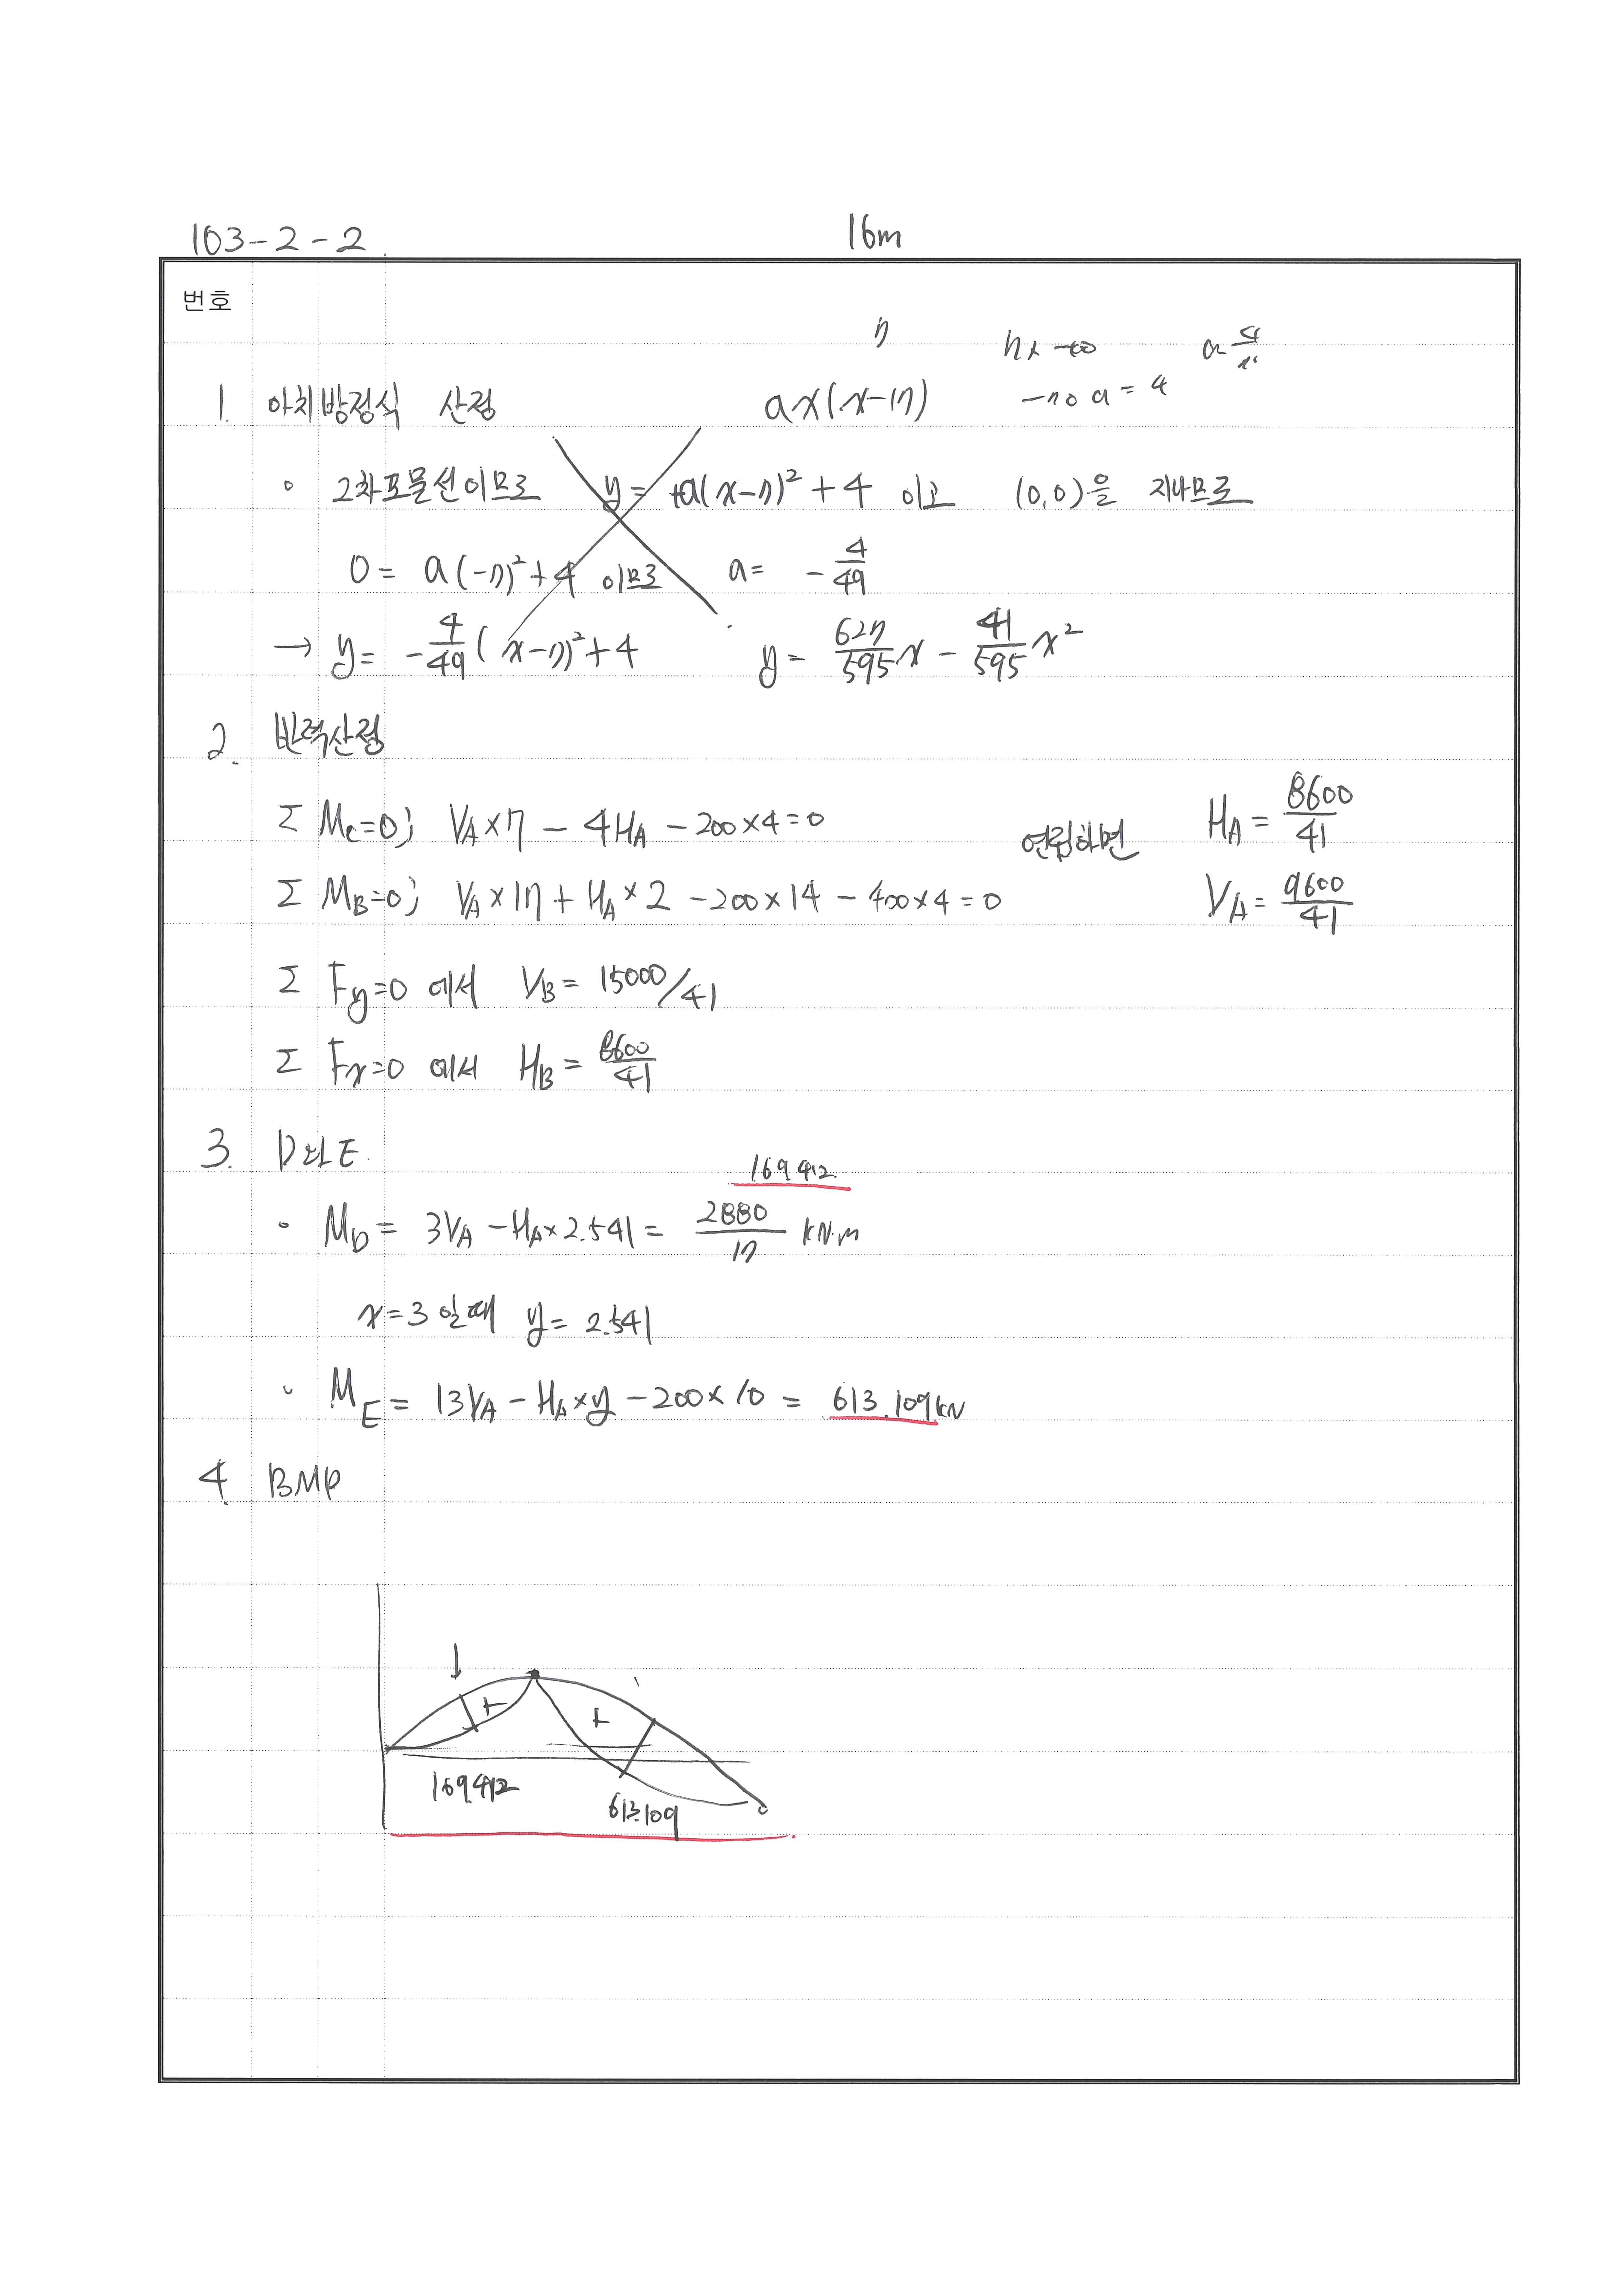 103-2-2
16m
번호
7
1. 아치방정식 산정 ax(x-17)
-70a = 4
∘ 2차포물선이므로 y = +a(x-7)² + 4 이고 (0,0)을 지나므로
0 = a(-7)² + 4 이므로 a = -4/49
→ y = -4/49 (x-7)² + 4 y = 627/595 x - 41/595 x²
2. 반력산정
Σ Mc=0; VA×7 - 4HA - 200×4=0 연립하면 HA = 8600/41
Σ MB=0; VA×17 + HA×2 - 200×14 - 400×4=0 VA = 9600/41
Σ Fy=0 에서 VB = 15000/41
Σ Fx=0 에서 HB = 8600/41
3. D와 E
169.412
∘ MD = 3VA - HA×2.541 = 2880/17 kN·m
x=3 일때 y = 2.541
∘ ME = 13VA - HA×y - 200×10 = 613.109kN
4. BMD
+ +
169.412
613.109